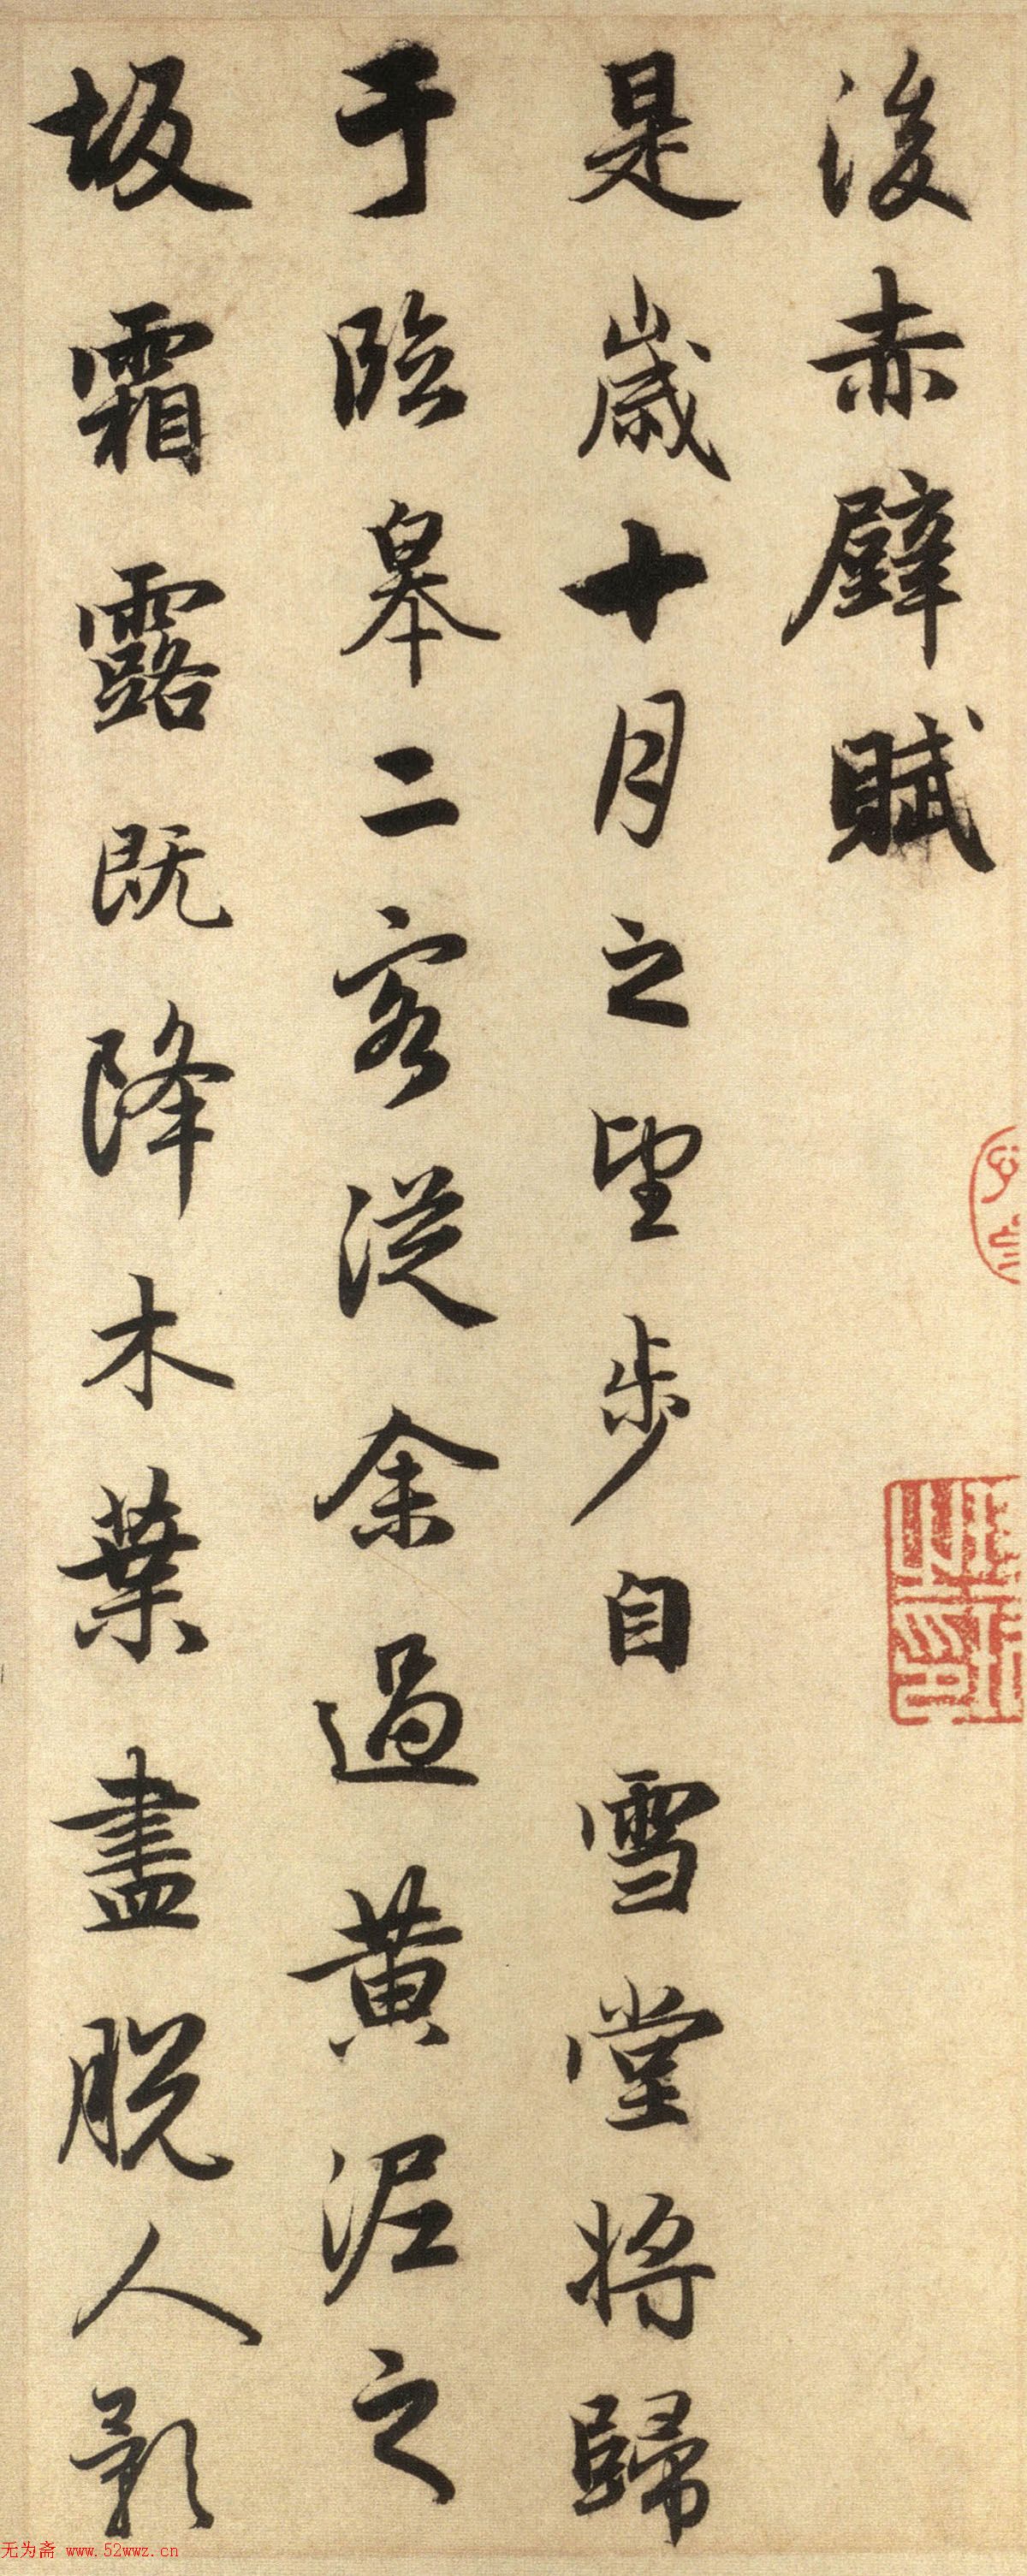 後赤壁賦
是歲十月之望步自雪堂將歸
于臨皋二客從余過黄泥之
坂霜露既降木葉盡脱人影
无为斋 www.52wwz.cn